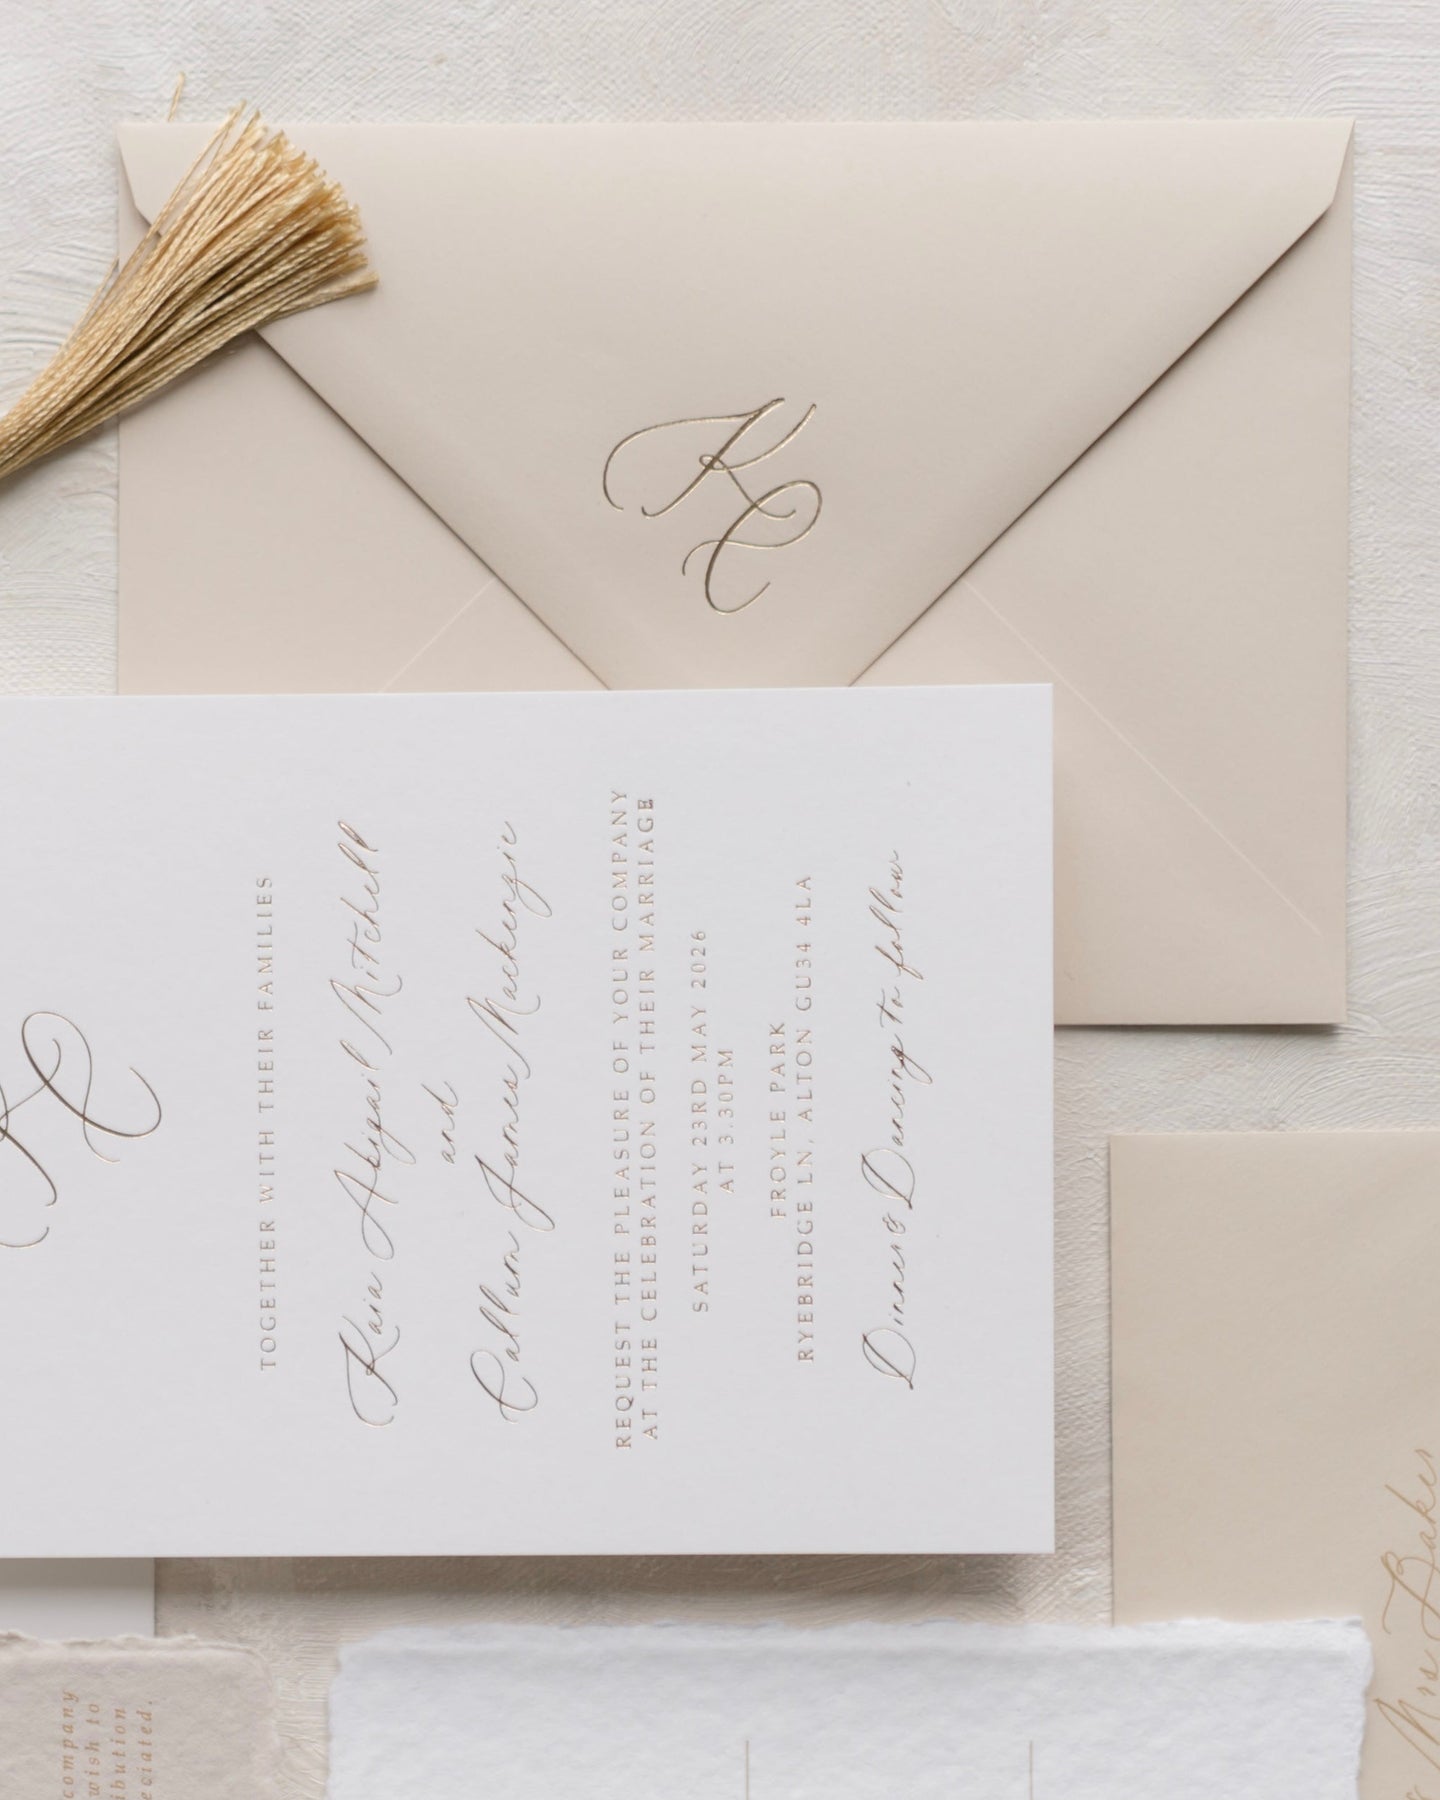 KC
KC
TOGETHER WITH THEIR FAMILIES
Kaia Abigail Mitchell
and
Callum James Mackenzie
REQUEST THE PLEASURE OF YOUR COMPANY
AT THE CELEBRATION OF THEIR MARRIAGE
SATURDAY 23RD MAY 2026
AT 3.30PM
FROYLE PARK
RYEBRIDGE LN, ALTON GU34 4LA
Dinner & Dancing to follow
Mrs Baker
company
wish to